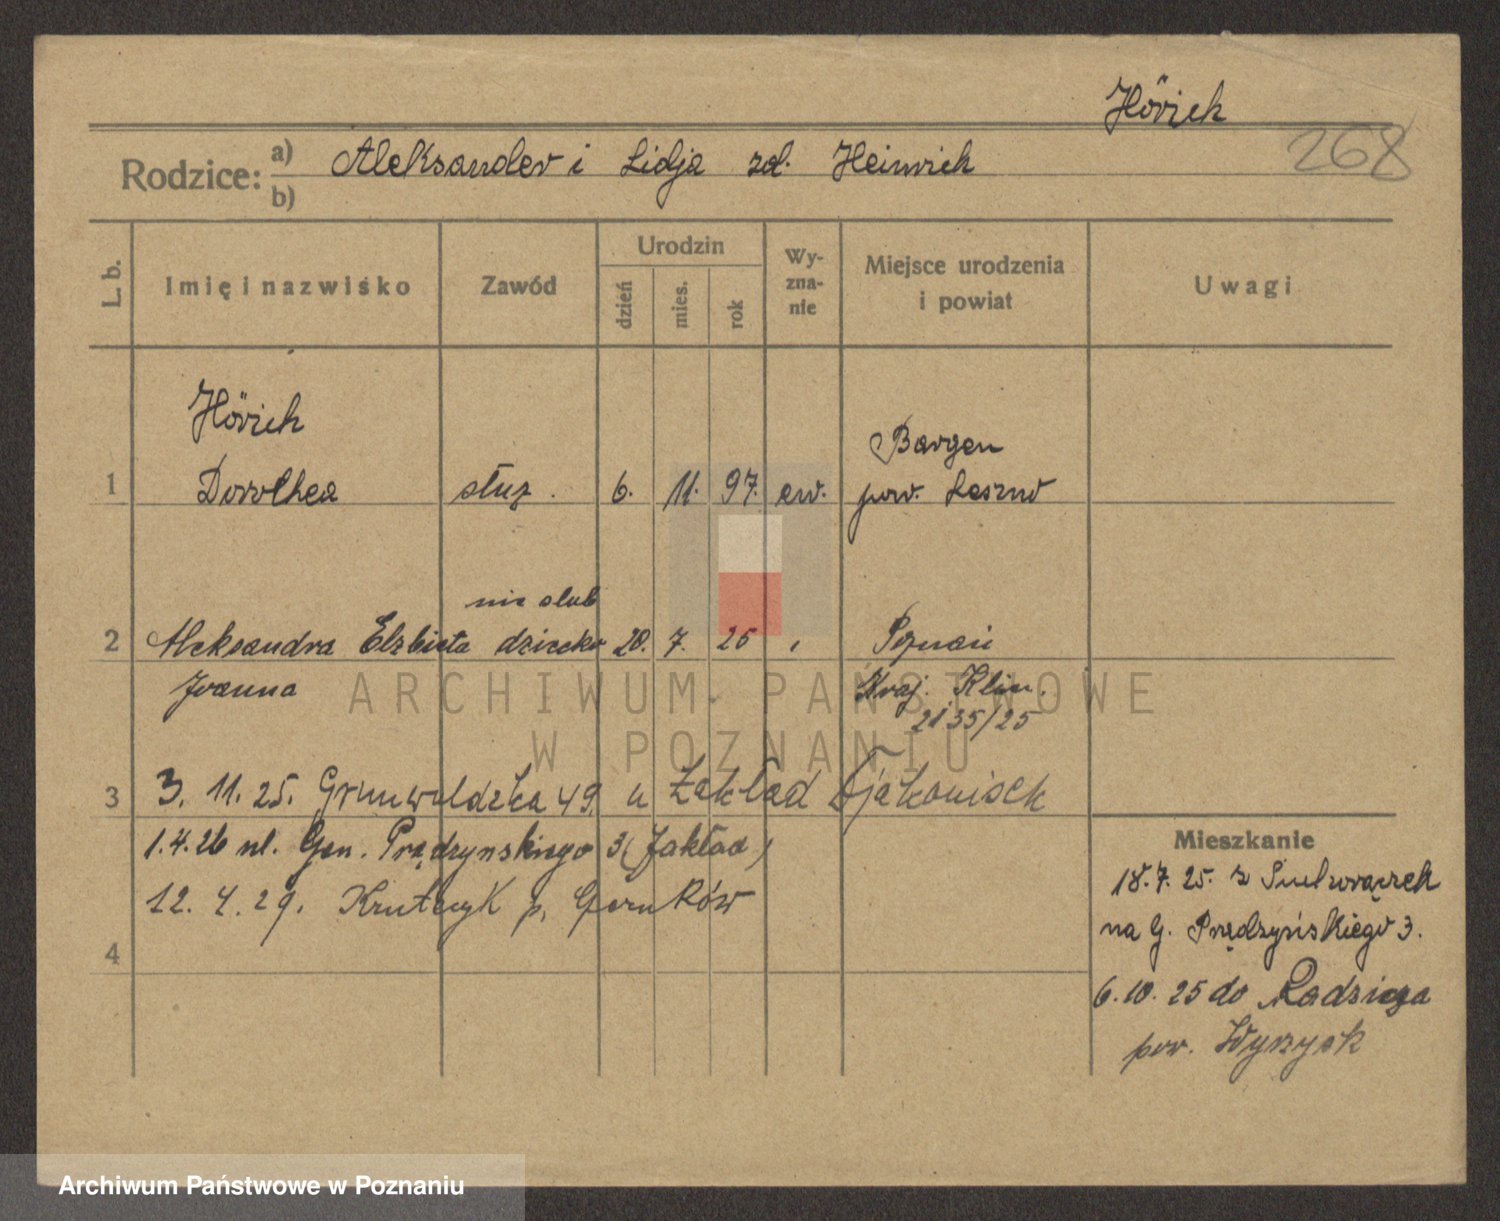 Hörich
268
Rodzice: a) Aleksander i Lidja zd. Heinrich
b)
L. b. Imię i nazwisko Zawód Urodzin dzień mies. rok Wy-zna-nie Miejsce urodzenia i powiat Uwagi
Hörich
Bargen
1 Dorothea służ. 6. 11. 97. ew. pow. Leszno
nie ślub
2 Aleksandra Elżbieta dziecko 20. 7. 25 Poznań
Joanna Kraj. Klin.
2135/25
ARCHIWUM PAŃSTWOWE
W POZNANIU
3 3. 11. 25. Grunwaldzka 49. u Zakład Djakonisek
1.4.26 ul. Gen. Prądzynskiego 3 (Zakład)
12. 4. 29. Kruteczyk p. Czernków
4
Mieszkanie
18.7.25. z
na G. Prądzyńskiego 3.
6.10.25 do Radzicza
pow. Wyrzysk
Archiwum Państwowe w Poznaniu